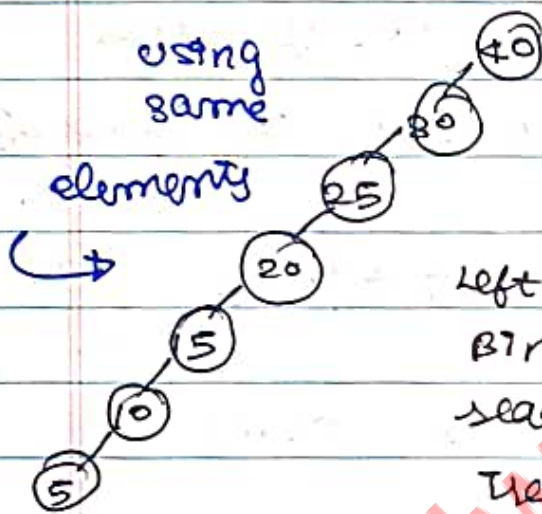 using
same
elements
40
30
25
20
15
10
5
Left
BIn
sea
Tre